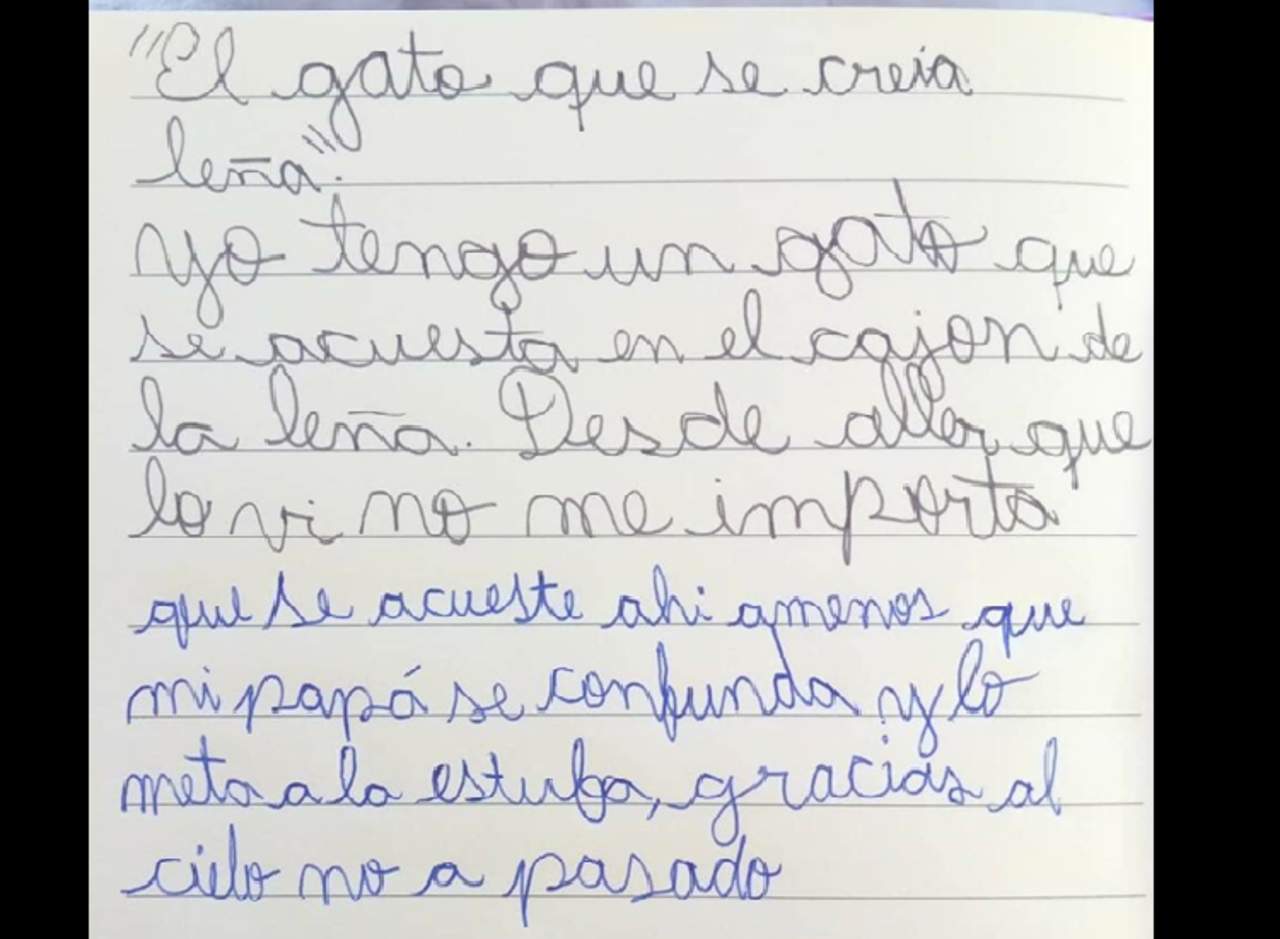 "El gato que se creia
leña".
yo tengo un gato que
se acuesta en el cajon de
la leña. Desde aller que
lo vi no me importa
que se acueste ahi amenos que
mi papá se confunda y lo
meta a la estufa, gracias al
cielo no a pasado